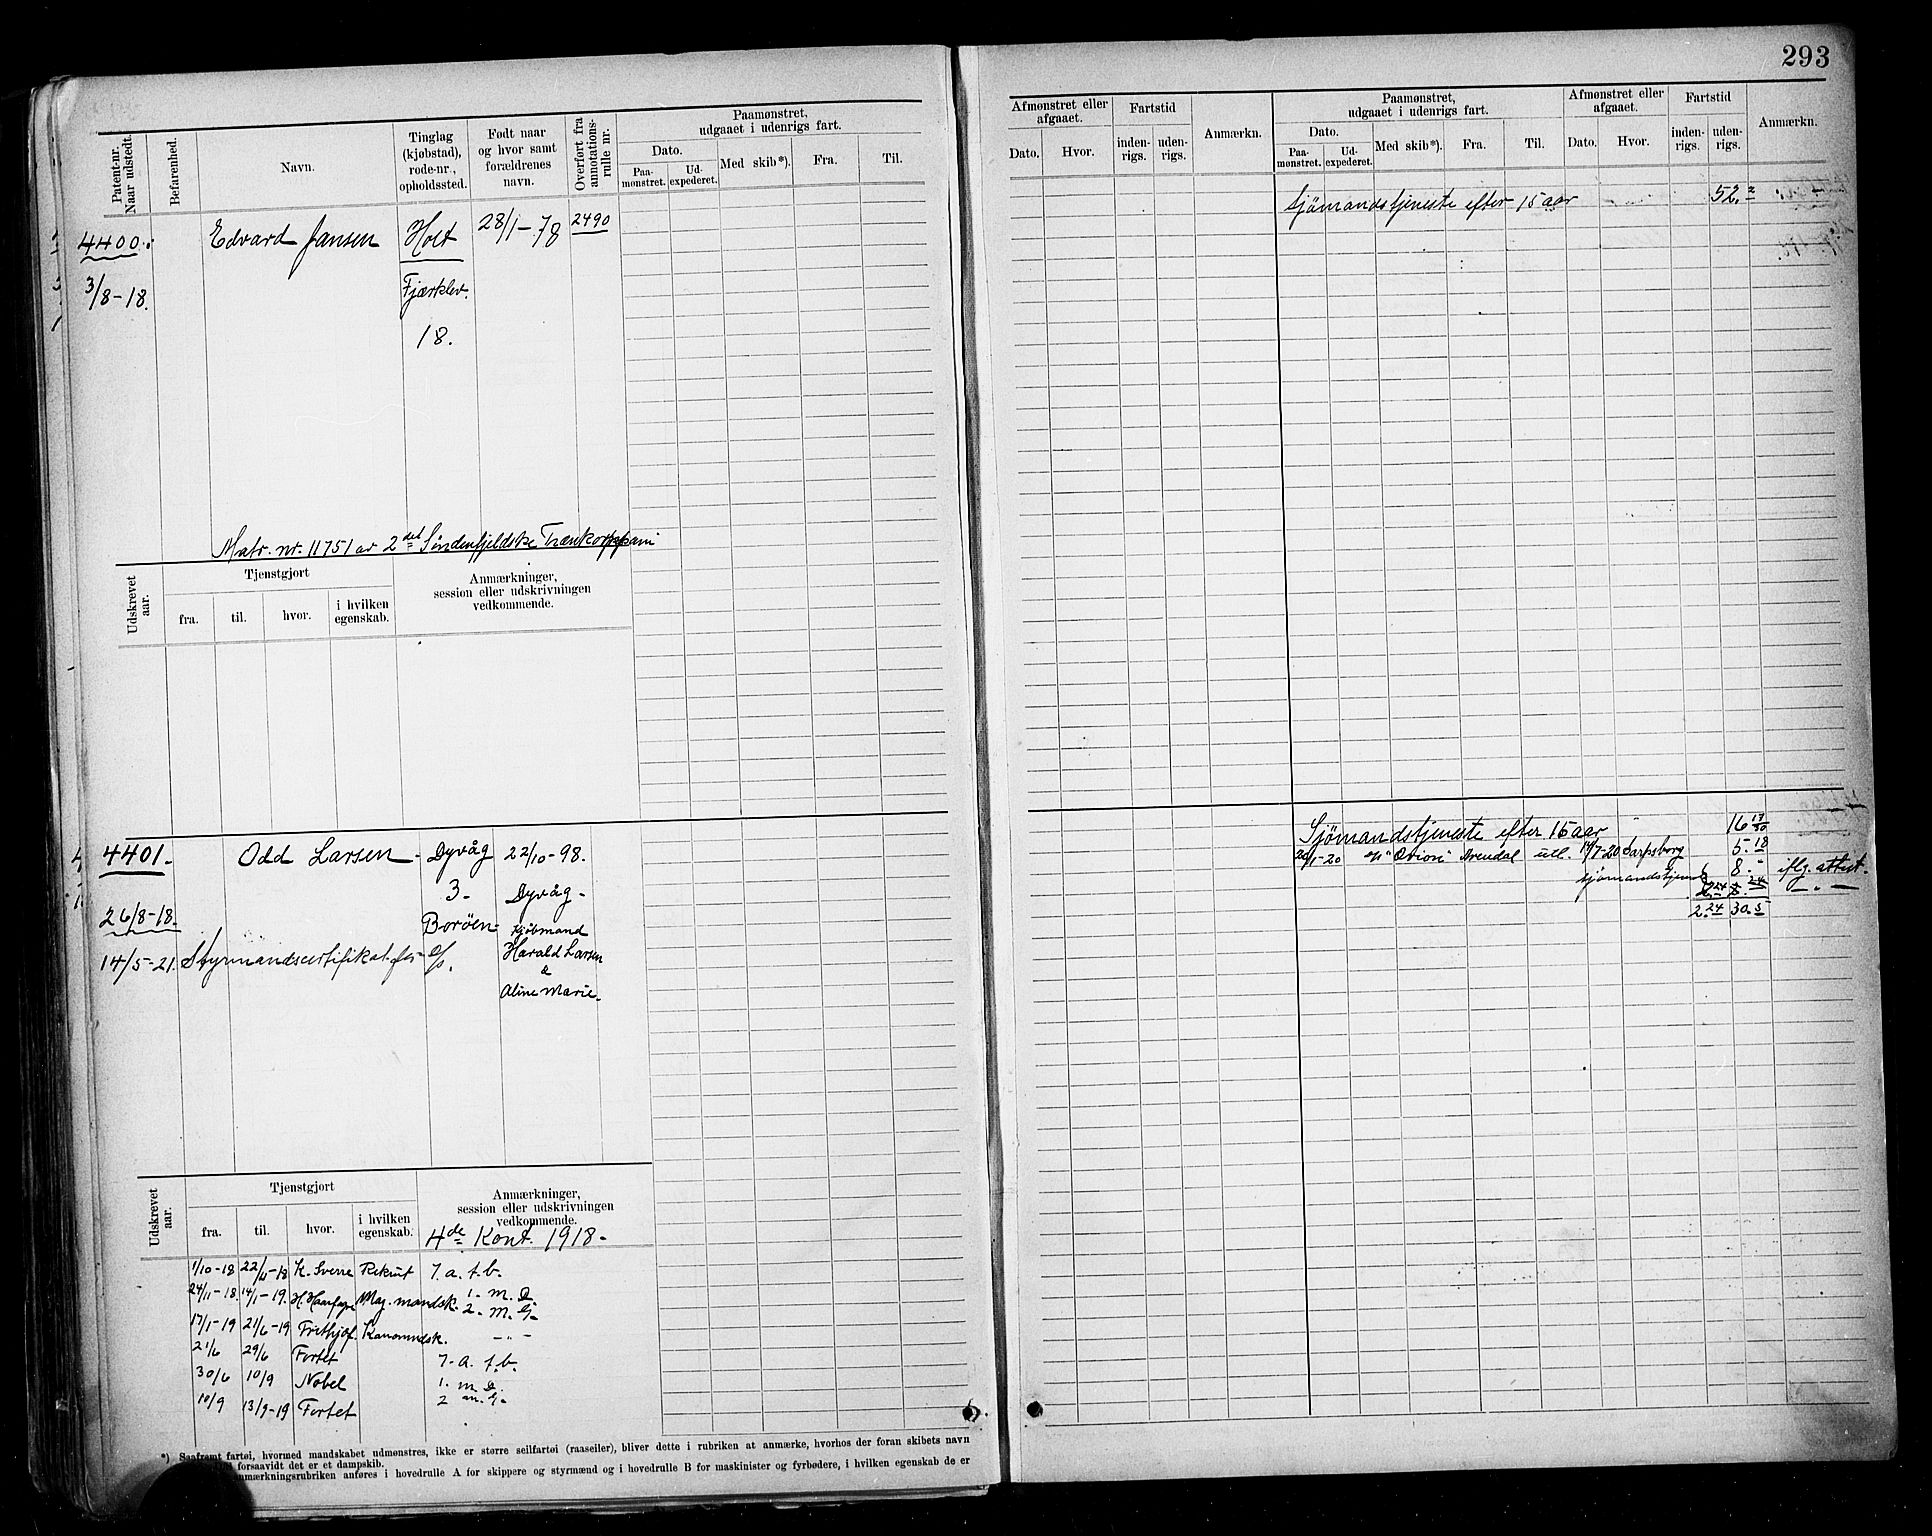 293
Patent-nr. Naar udstedt.
Befarenhed.
Navn.
Tinglag (kjøbstad), rode-nr., opholdssted.
Født naar og hvor samt forældrenes navn.
Overført fra annotations-rulle nr.
Paamønstret, udgaaet i udenrigs fart.
Dato.
Paa-mønstret.
Ud-expederet.
Med skib*).
Fra.
Til.
Afmønstret eller afgaaet.
Dato.
Hvor.
Fartstid
inden-rigs.
uden-rigs.
Anmærkn.
Paamønstret, udgaaet i udenrigs fart.
Dato.
Paa-mønstret.
Ud-expederet.
Med skib*).
Fra.
Til.
Afmønstret eller afgaaet.
Dato.
Hvor.
Fartstid
inden-rigs.
uden-rigs.
Anmærkn.
4400. Edvard Jansen Holt 28/1-78 2490
3/8-18. Fjærklev.
18.
Sjömandstjeneste efter 15 aar 52.
Matr. nr. 11751 av 2det Söndenfjeldske Trænkompani
Udskrevet aar.
Tjenstgjort
fra. til. hvor. i hvilken egenskab.
Anmærkninger, session eller udskrivningen vedkommende.
4401. Odd Larsen Dyvåg 22/10-98.
3- Dyvåg-
26/8-18. Borøen- kjöbmand
14/5-21. Styrmandscertifikat Harald Larsen
&
Aline Marie.
Sjömandstjeneste efter 15 aar 16 17/30
20/1-20 "Orion" Arendal utl. 14/7-20 Sarpsborg 5.18
sjömandstjen. 8.- iflg. attest.
2.24 30.5
Udskrevet aar.
Tjenstgjort
fra. til. hvor. i hvilken egenskab.
Anmærkninger, session eller udskrivningen vedkommende.
4de Kont. 1918-
1/10-18 22/11-18 K. Sverre Rekrut 7. a. f. b.
24/11-18. 14/1-19. H. Haarfagre Mag. mandsk. 1. m. D. 2. m. G-
17/1-19 21/6-19 Frithjof. Kanomndsk. - " -
21/6 29/6 Fortet 7- a. f. b.
30/6 10/9 Nobel 1. m. D. 2 m. G-
10/9 13/9-19 Fortet
*) Saafremt fartøi, hvormed mandskabet udmønstres, ikke er større seilfartøi (raaseiler), bliver dette i rubriken at anmærke, hvorhos der foran skibets navn
forsaavidt det er et dampskib.
mærkningsrubriken anføres i hovedrulle A for skippere og styrmænd og i hovedrulle B for maskinister og fyrbødere, i hvilken egenskab de er